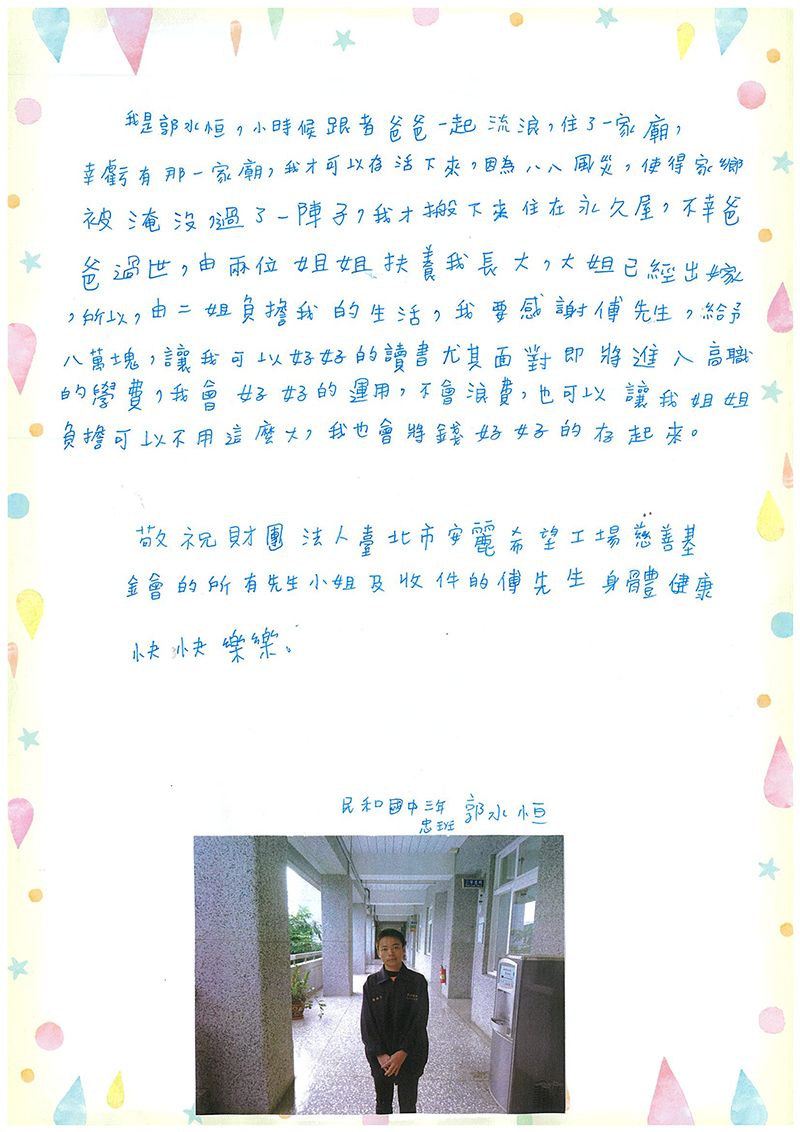 我是郭水恒，小時候跟著爸爸一起流浪，住了一家廟，
幸虧有那一家廟，我才可以存活下來，因為八八風災，使得家鄉
被淹沒，過了一陣子，我才搬下來住在永久屋，不幸爸
爸過世，由兩位姐姐扶養我長大，大姐已經出嫁
，所以，由二姐負擔我的生活，我要感謝傅先生，給予
八萬塊，讓我可以好好的讀書尤其面對即將進入高職
的學費，我會好好的運用，不會浪費，也可以讓我姐姐
負擔可以不用這麼大，我也會將錢好好的存起來。
敬祝財團法人臺北市安麗希望工場慈善基
金會的所有先生小姐及收件的傅先生身體健康
快快樂樂。
民和國中三年 郭水恒
忠班